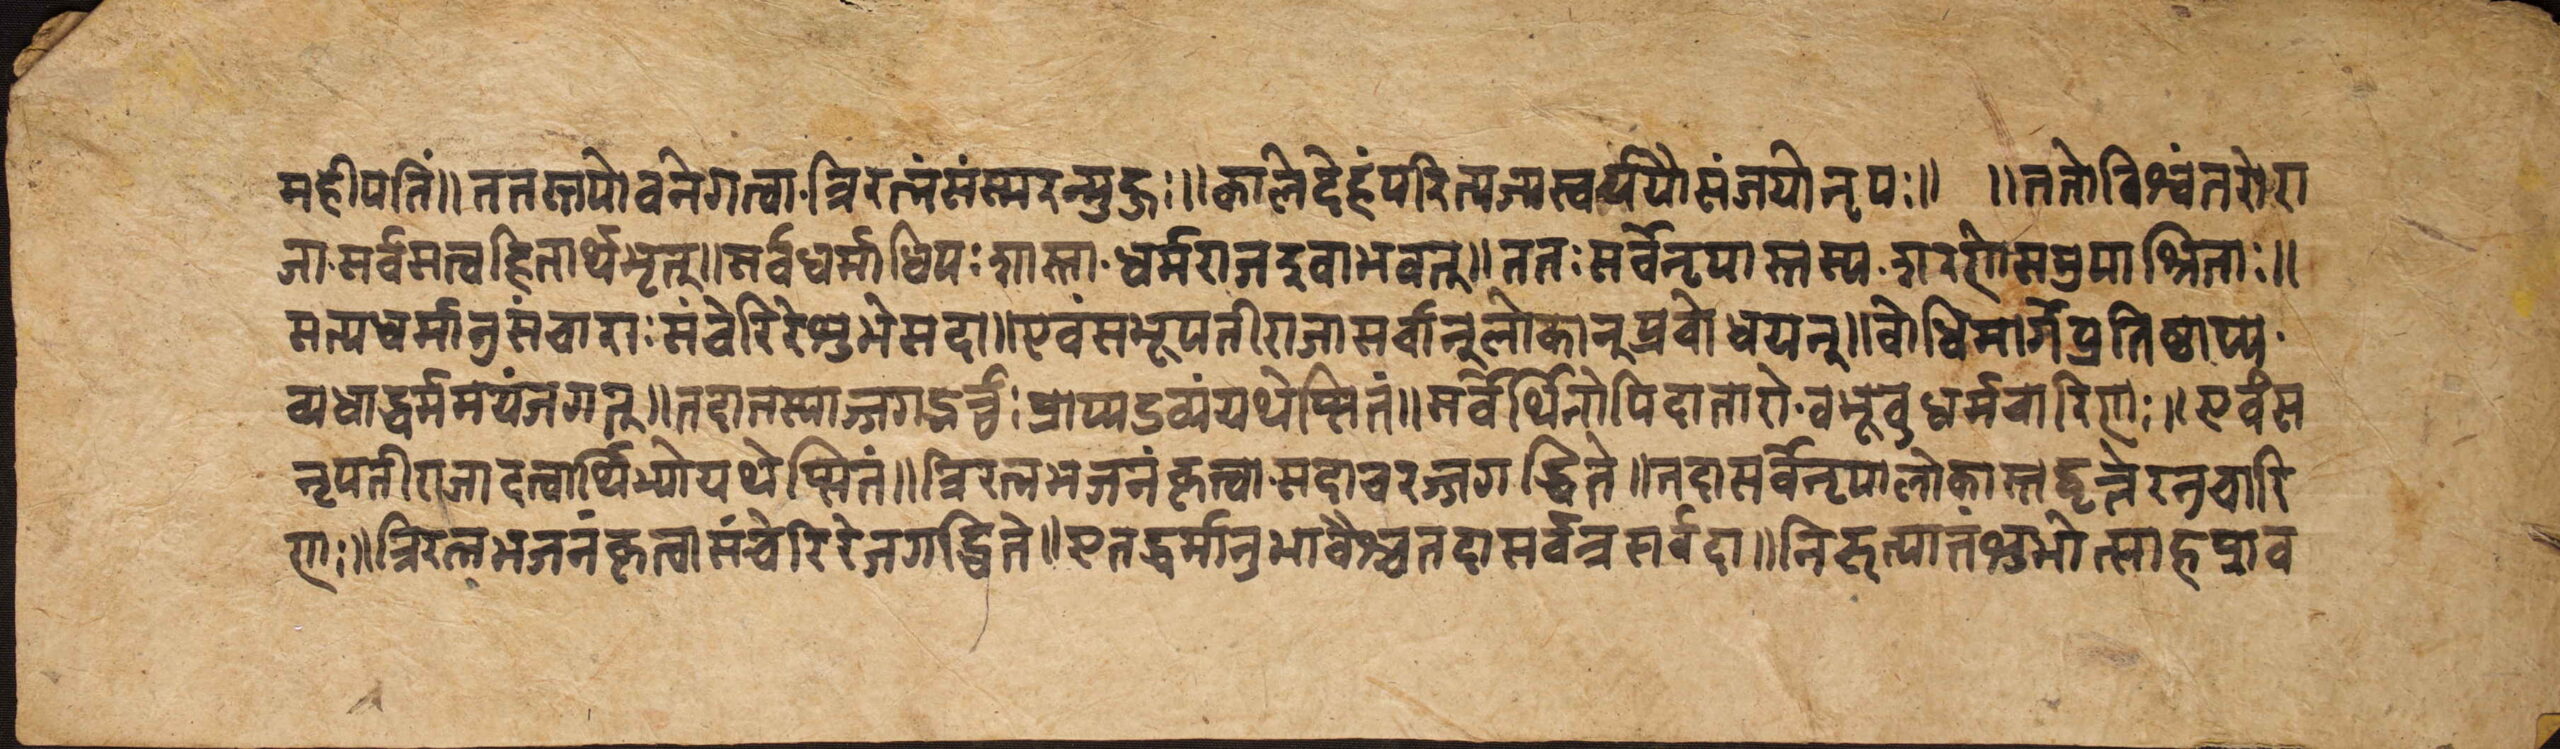 महीपतिं॥ततस्तपोवनेगत्वा·त्रिरत्नंसंस्मरन्मुहुः॥कालेदेहंपरित्यज्यस्वर्ययौसंजयोनृपः॥ ॥ततोविश्वंतरोरा
जा·सर्वसत्वहितार्थभृत्॥सर्वधर्माधिपःशास्ता·धर्मराजइवाभवत्॥ततःसर्वेनृपास्तस्य·शरणेसमुपाश्रिताः॥
सत्यधर्मानुसंचाराःसंचेरिरेशुभेसदा॥एवंसभूपतीराजासर्वान्लोकान्प्रबोधयन्॥बोधिमार्गेप्रतिष्ठाप्य·
व्यधाद्धर्ममयंजगत्॥तदातस्माज्जगद्भर्त्तुःप्राप्यद्रव्यंयथेप्सितं॥सर्वेर्थिनोपिदातारो·बभूवुधर्मचारिणः॥एवंस
नृपतीराजादत्वार्थिभ्योयथेप्सितं॥त्रिरत्नभजनंकृत्वा·सदाचरज्जगद्धिते॥तदासर्वेनृपालोकास्तद्वृत्तेरनुचारि
णः॥त्रिरत्नभजनंकृत्वासंचेरिरेजगद्धिते॥एतद्धर्मानुभावैश्चतदासर्वत्रसर्वदा॥निरुत्पातंशुभोत्साहप्राव